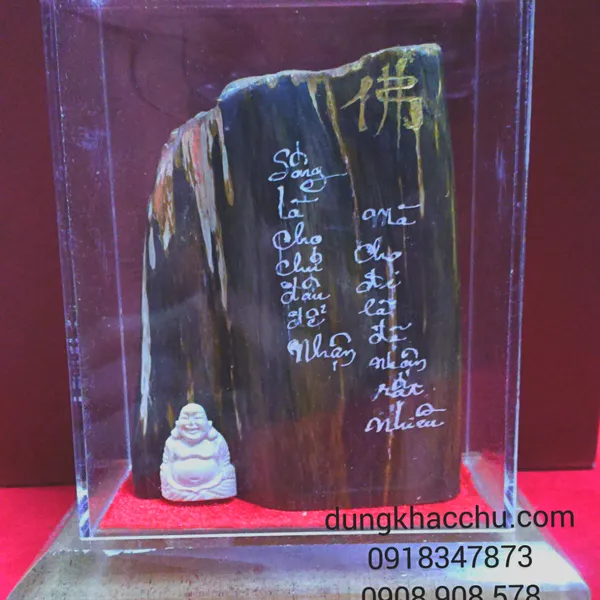 佛
Sống
là
Cho
Chứ
đâu
để
Nhận
Mà
Cho
đi
là
đã
Nhận
rất
Nhiều
dungkhacchu.com
0918347873
0908.908.578